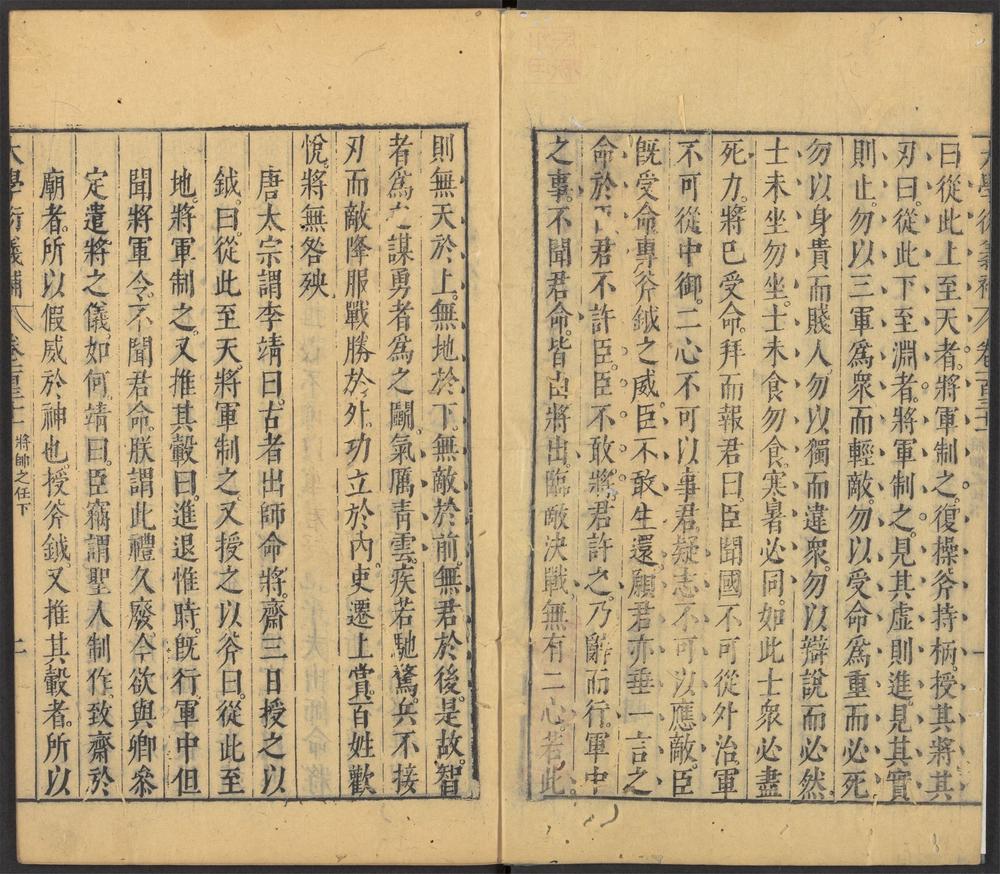 大學衍義補 卷一百三十
曰從此上至天者將軍制之復操斧持柄授其將其
刃曰從此下至淵者將軍制之見其虛則進見其實
則止勿以三軍為衆而輕敵勿以受命為重而必死
勿以身貴而賤人勿以獨而違衆勿以辯說而必然
士未坐勿坐士未食勿食寒暑必同如此士衆必盡
死力將已受命拜而報君曰臣聞國不可從外治軍
不可從中御二心不可以事君疑志不可以應敵臣
旣受命專斧鉞之威臣不敢生還願君亦垂一言之
命於君不許臣臣不敢將君許之乃辭而行軍中
之事不聞君命皆由將出臨敵決戰無有二心若此
則無天於上無地於下無敵於前無君於後是故智
者為之謀勇者為之鬭氣厲青雲疾若馳騖兵不接
刃而敵降服戰勝於外功立於內吏遷上賞百姓歡
悅將無咎殃
唐太宗謂李靖曰古者出師命將齋三日授之以
鉞曰從此至天將軍制之又授之以斧曰從此至
地將軍制之又推其轂曰進退惟時旣行軍中但
聞將軍令不聞君命朕謂此禮久廢今欲與卿叅
定遣將之儀如何靖曰臣竊謂聖人制作致齋於
廟者所以假威於神也授斧鉞又推其轂者所以
大學衍義補 卷一百三十 將帥之任下